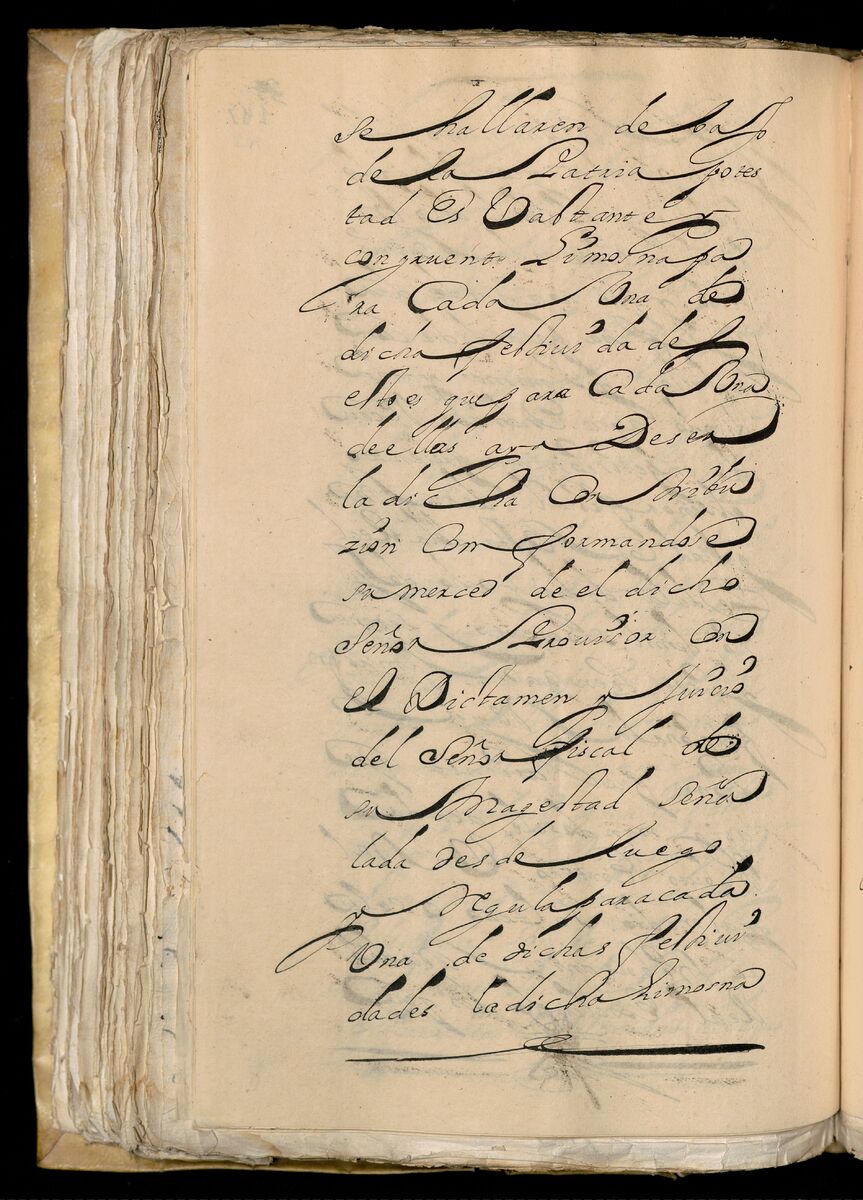 se hallaren de baJo
de la Patria potes
tad Es Vastante y
congruente Limosna pa
ra Cada Vna de
dicha festiuidades
esto es que para Cada Vna
de ellas aya De ser
la dicha Contribu
zion Conformandose
su merced de el dicho
Señor Prouisor Con
el Dictamen y Juicio
del Señor fiscal de
su Magestad Seña
lada desde luego
y regula para cada
Vna de dichas festiui
dades la dicha Limosna